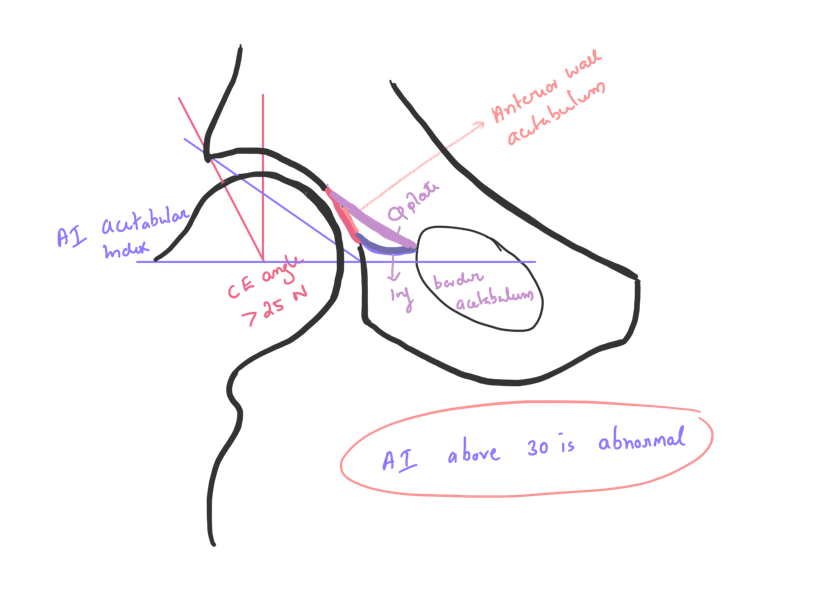 Anterior wall
acetabulum
Q plate
AI acetabular
Index
CE angle
>25 N
Inf border
acetabulum
AI above 30 is abnormal